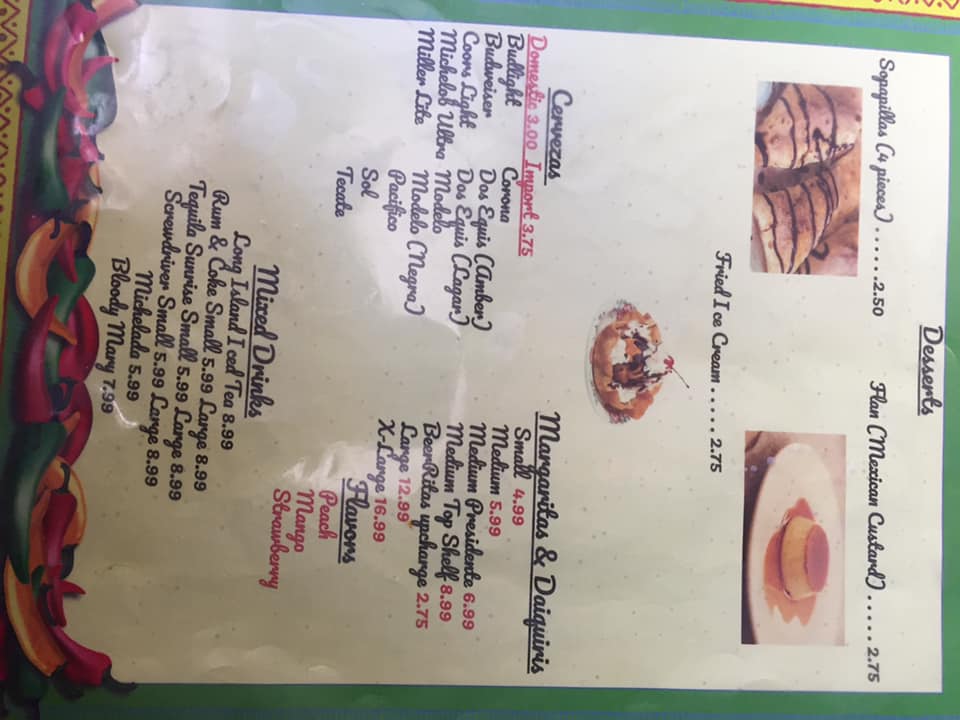 Desserts
Sopapillas (4 pieces) . . . . . . 2.50
Flan (Mexican Custard) . . . . . 2.75
Fried Ice Cream . . . . . 2.75
Cervezas
Domestic 3.00 Import 3.75
Budlight Corona
Budweiser Dos Equis (Amber)
Coors Light Dos Equis (Lagar)
Michelob Ultra Modelo
Miller Lite Modelo (Negra)
Pacifico
Sol
Tecate
Margaritas & Daiquiris
Small 4.99
Medium 5.99
Medium Presidente 6.99
Medium Top Shelf 8.99
BeerRitas upcharge 2.75
Large 12.99
X-Large 16.99
Flavors
Peach
Mango
Strawberry
Mixed Drinks
Long Island Iced Tea 8.99
Rum & Coke Small 5.99 Large 8.99
Tequila Sunrise Small 5.99 Large 8.99
Screwdriver Small 5.99 Large 8.99
Michelada 5.99
Bloody Mary 7.99